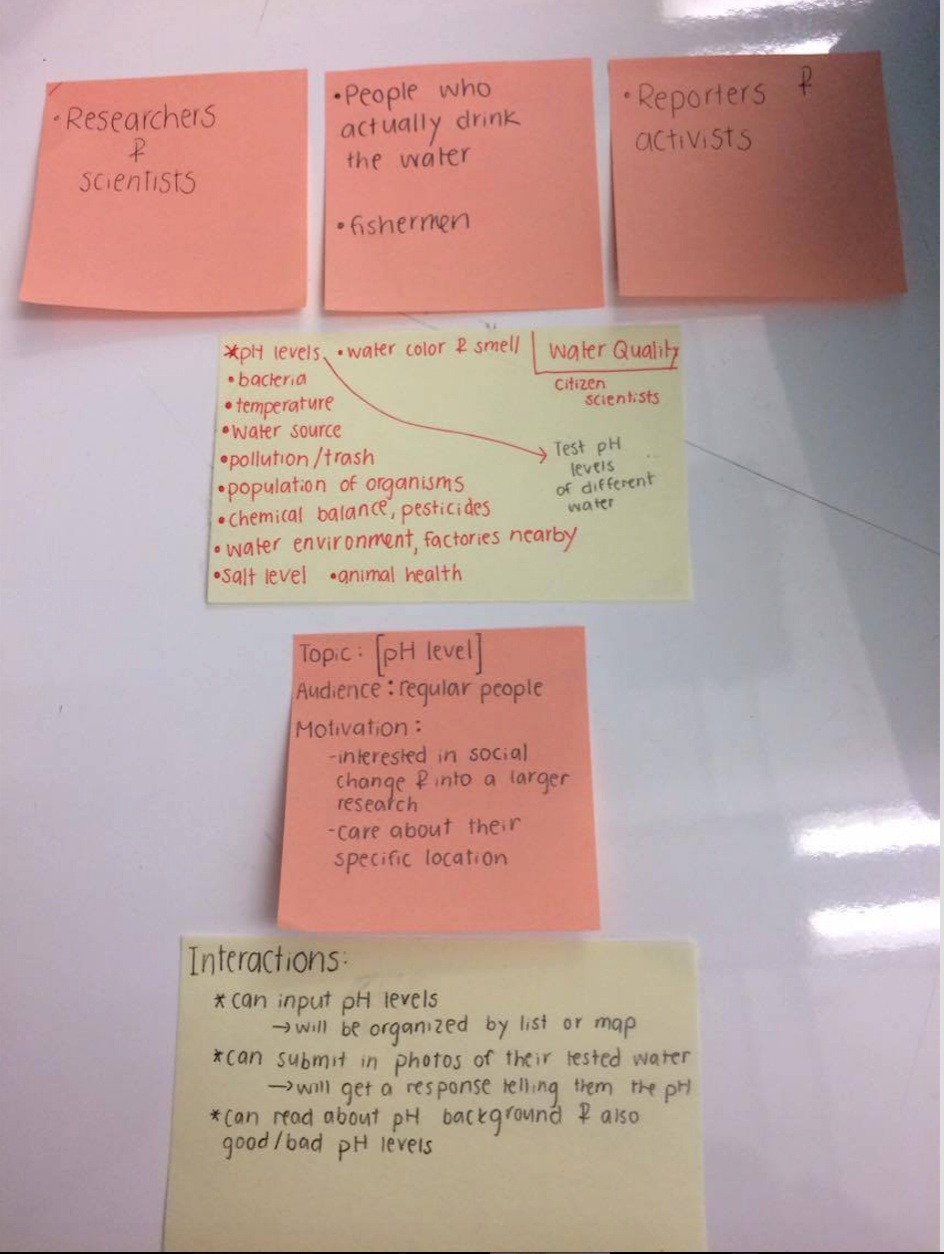 •Researchers
&
scientists
•People who
actually drink
the water
•fishermen
•Reporters &
activists
*pH levels •water color & smell
•bacteria
•temperature
•water source
•pollution/trash
•population of organisms
•chemical balance, pesticides
•water environment, factories nearby
•salt level •animal health
Water Quality
citizen
scientists
Test pH
levels
of different
water
Topic: [pH level]
Audience: regular people
Motivation:
-interested in social
change & into a larger
research
-care about their
specific location
Interactions:
*can input pH levels
→will be organized by list or map
*can submit in photos of their tested water
→will get a response telling them the pH
*can read about pH background & also
good/bad pH levels